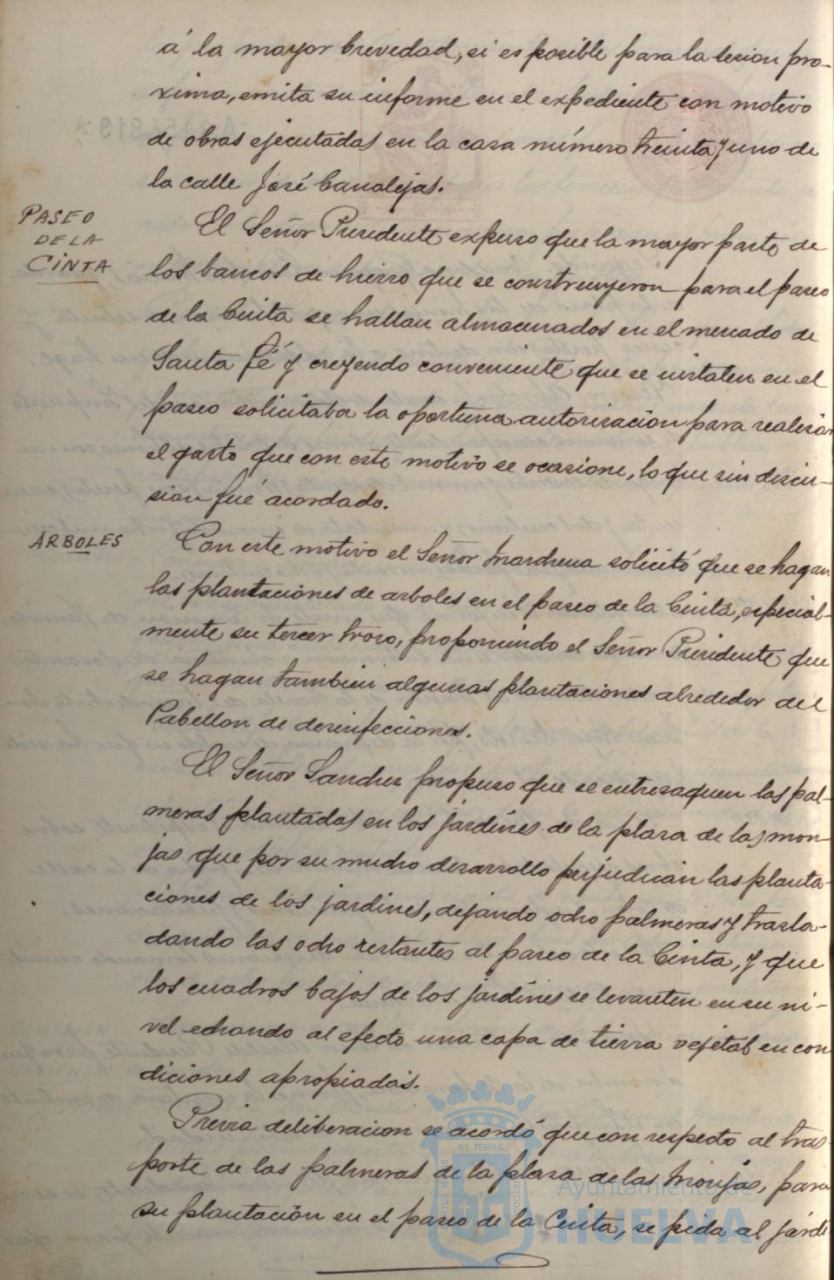 á la mayor brevedad, si es posible para la sesion pro-
xima, emita su informe en el expediente con motivo
de obras ejecutadas en la casa número treinta y uno de
la calle José Canalejas.
PASEO
DE LA
CINTA
El Señor Presidente expuso que la mayor parte de
los bancos de hierro que se construyeron para el paseo
de la Cinta se hallan almacenados en el mercado de
Santa Fé y creyendo conveniente que se instalen en el
paseo solicitaba la oportuna autorisacion para realisar
el gasto que con este motivo se ocasione, lo que sin discu-
sion fué acordado.
ARBOLES
Con este motivo el Señor Marchena solicitó que se hagan
las plantaciones de arboles en el paseo de la Cinta, especial-
mente su tercer troso, proponiendo el Señor Presidente que
se hagan tambien algunas plantaciones alrededor del
Pabellon de desinfecciones.
El Señor Sanchez propuso que se entresaquen las pal-
meras plantadas en los jardines de la plaza de las mon-
jas que por su mucho desarrollo perjudican las planta-
ciones de los jardines, dejando ocho palmeras y trasla-
dando las ocho restantes al paseo de la Cinta, y que
los cuadros bajos de los jardines se levanten en su ni-
vel echando al efecto una capa de tierra vejetal en con
diciones apropiadas.
Previa deliberacion se acordó que con respecto al tras
porte de las palmeras de la plaza de las Monjas, para
su plantación en el paseo de la Cinta, se pida al jardi-
Ayuntamiento de
HUELVA